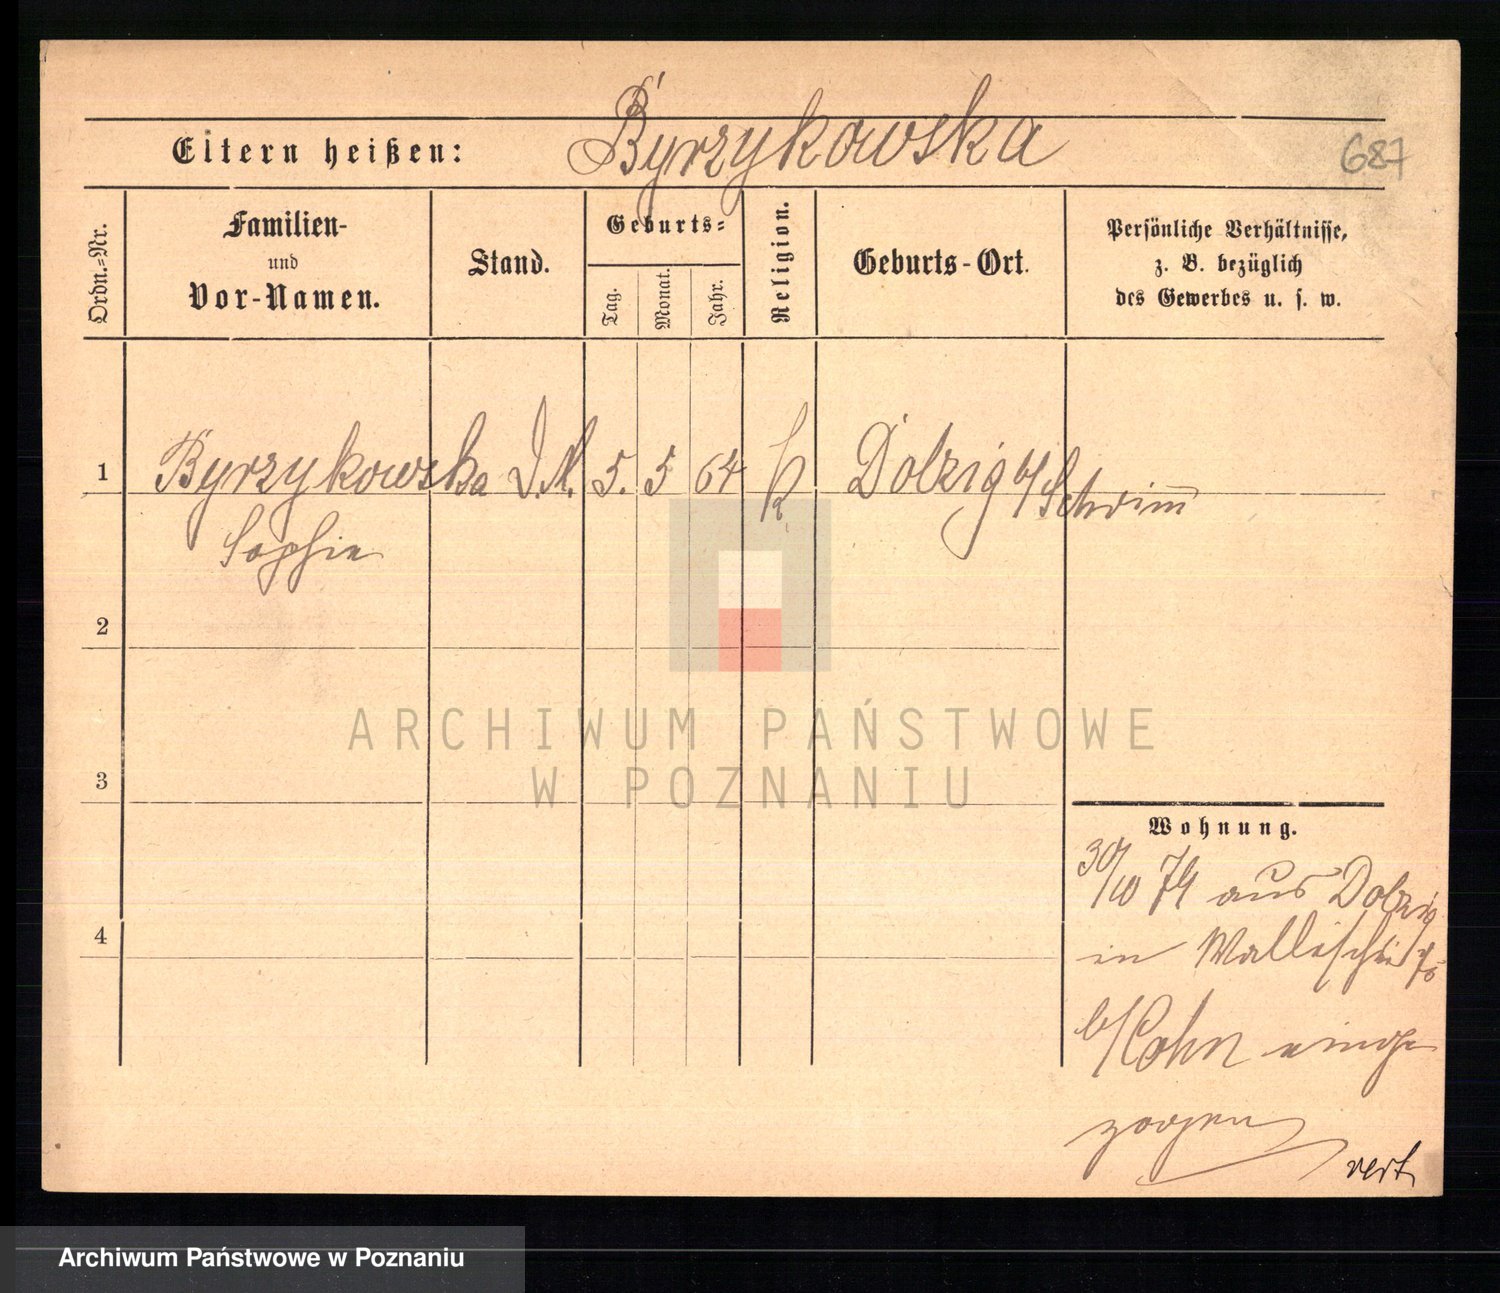 Byrzykowska
Eltern heißen:
687
Ordn.=Nr.
Familien-
und
Vor-Namen.
Stand.
Geburts=
Tag.
Monat.
Jahr.
Religion.
Geburts-Ort.
Persönliche Verhältnisse,
z. B. bezüglich
des Gewerbes u. s. w.
1
Byrzykowska D.M. 5. 5 64 k Dolzig b/Schrimm
Sophie
2
ARCHIWUM PAŃSTWOWE
W POZNANIU
3
Wohnung.
30/10 74 aus Dolzig
4
in Wallischei
b/Cohn einge
zogen
vert
Archiwum Państwowe w Poznaniu